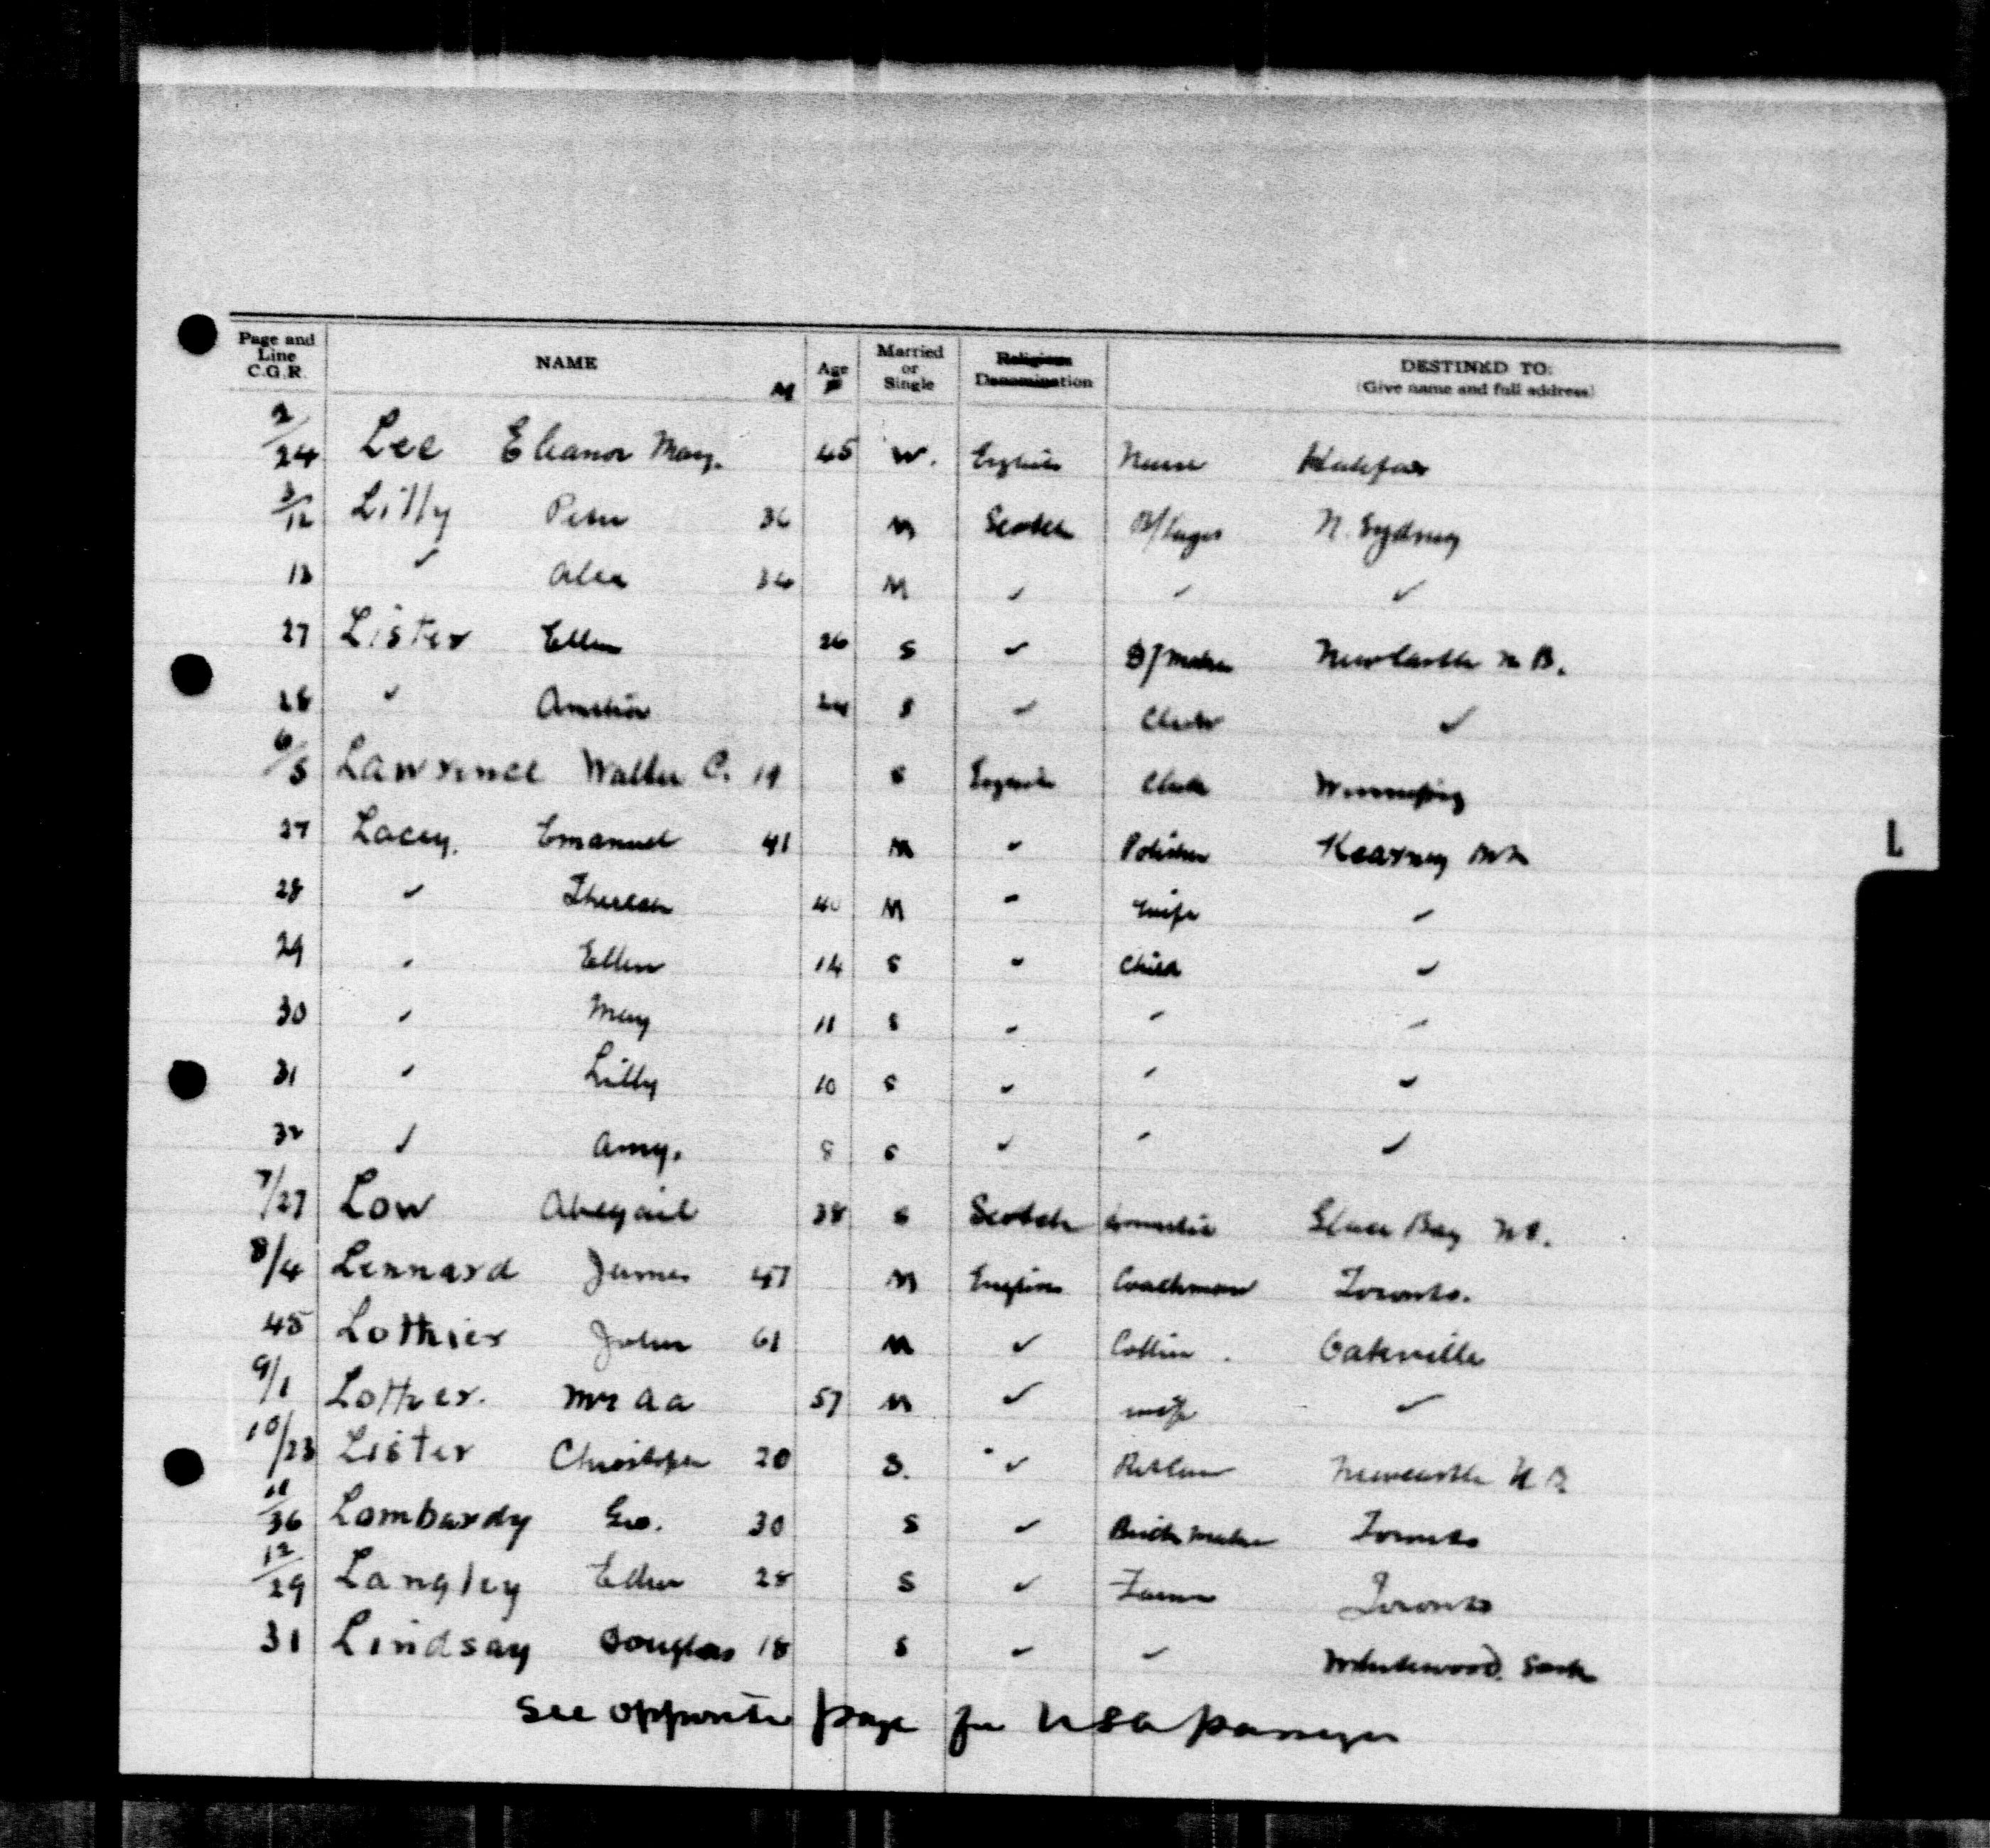 Page and Line C.G.R. NAME M Age F Married or Single Religious Denomination DESTINED TO: (Give name and full address)
2/24 Lee Eleanor May. 45 W. English Nurse Halifax
3/12 Lilly Peter 36 M Scotch N. Sydney
13 ✓ Alex 34 M ✓ ✓ ✓
27 Lister Ellen 26 S ✓ D/Maker Newcastle N B.
28 ✓ Amelia 24 S ✓ Clerk ✓
6/5 Lawrence Walter C. 19 S English Clerk Winnipeg
27 Lacey. Emanuel 41 M " Polisher Kearney
28 " Theresa 40 M " wife "
29 " Ellen 14 S " Child "
30 " May 11 S " " "
31 " Lilly 10 S " " "
32 ✓ Amy. 8 S ✓ " ✓
7/27 Low Abegail 38 S Scotch domestic Glace Bay N S.
8/4 Lennard James 47 M English Coachman Toronto.
45 Lothier John 61 M ✓ Oakville
9/1 Lother. Mrs A A 57 M ✓ wife ✓
10/23 Lister Christopher 20 S. ✓ Newcastle N B
11/36 Lombardy Geo. 30 S ✓ Brick Maker Toronto
12/29 Langley Edw 28 S ✓ Farmer Toronto
31 Lindsay Douglas 18 S ✓ ✓ Whitewood. Sask
See opposite page for USA passengers
L